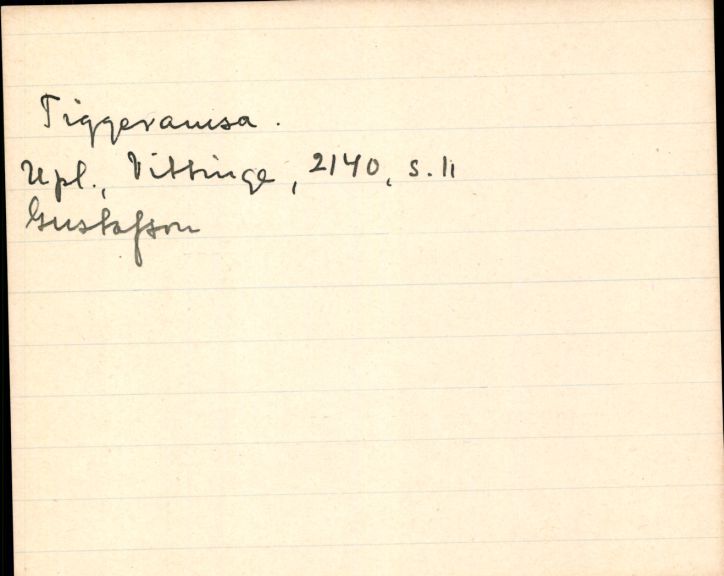 Tiggeramsa.
Upl., Vittinge, 2140, s. 11
Gustafsson